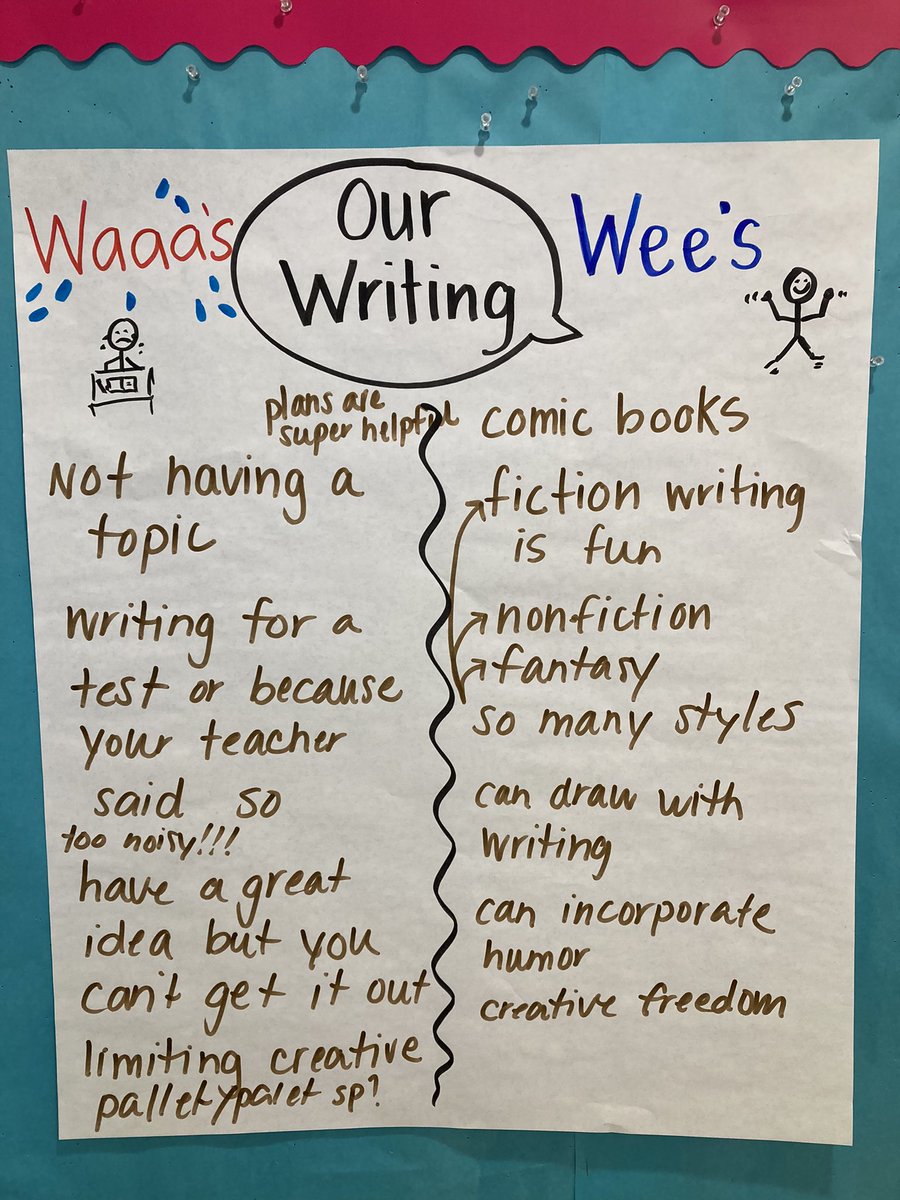 Waaa's
Our
Writing
Wee's
plans are
super helpful
Not having a
topic
writing for a
test or because
your teacher
said so
too noisy!!!
have a great
idea but you
can't get it out
limiting creative
pallety/palet sp?
comic books
fiction writing
is fun
nonfiction
fantasy
so many styles
can draw with
writing
can incorporate
humor
creative freedom